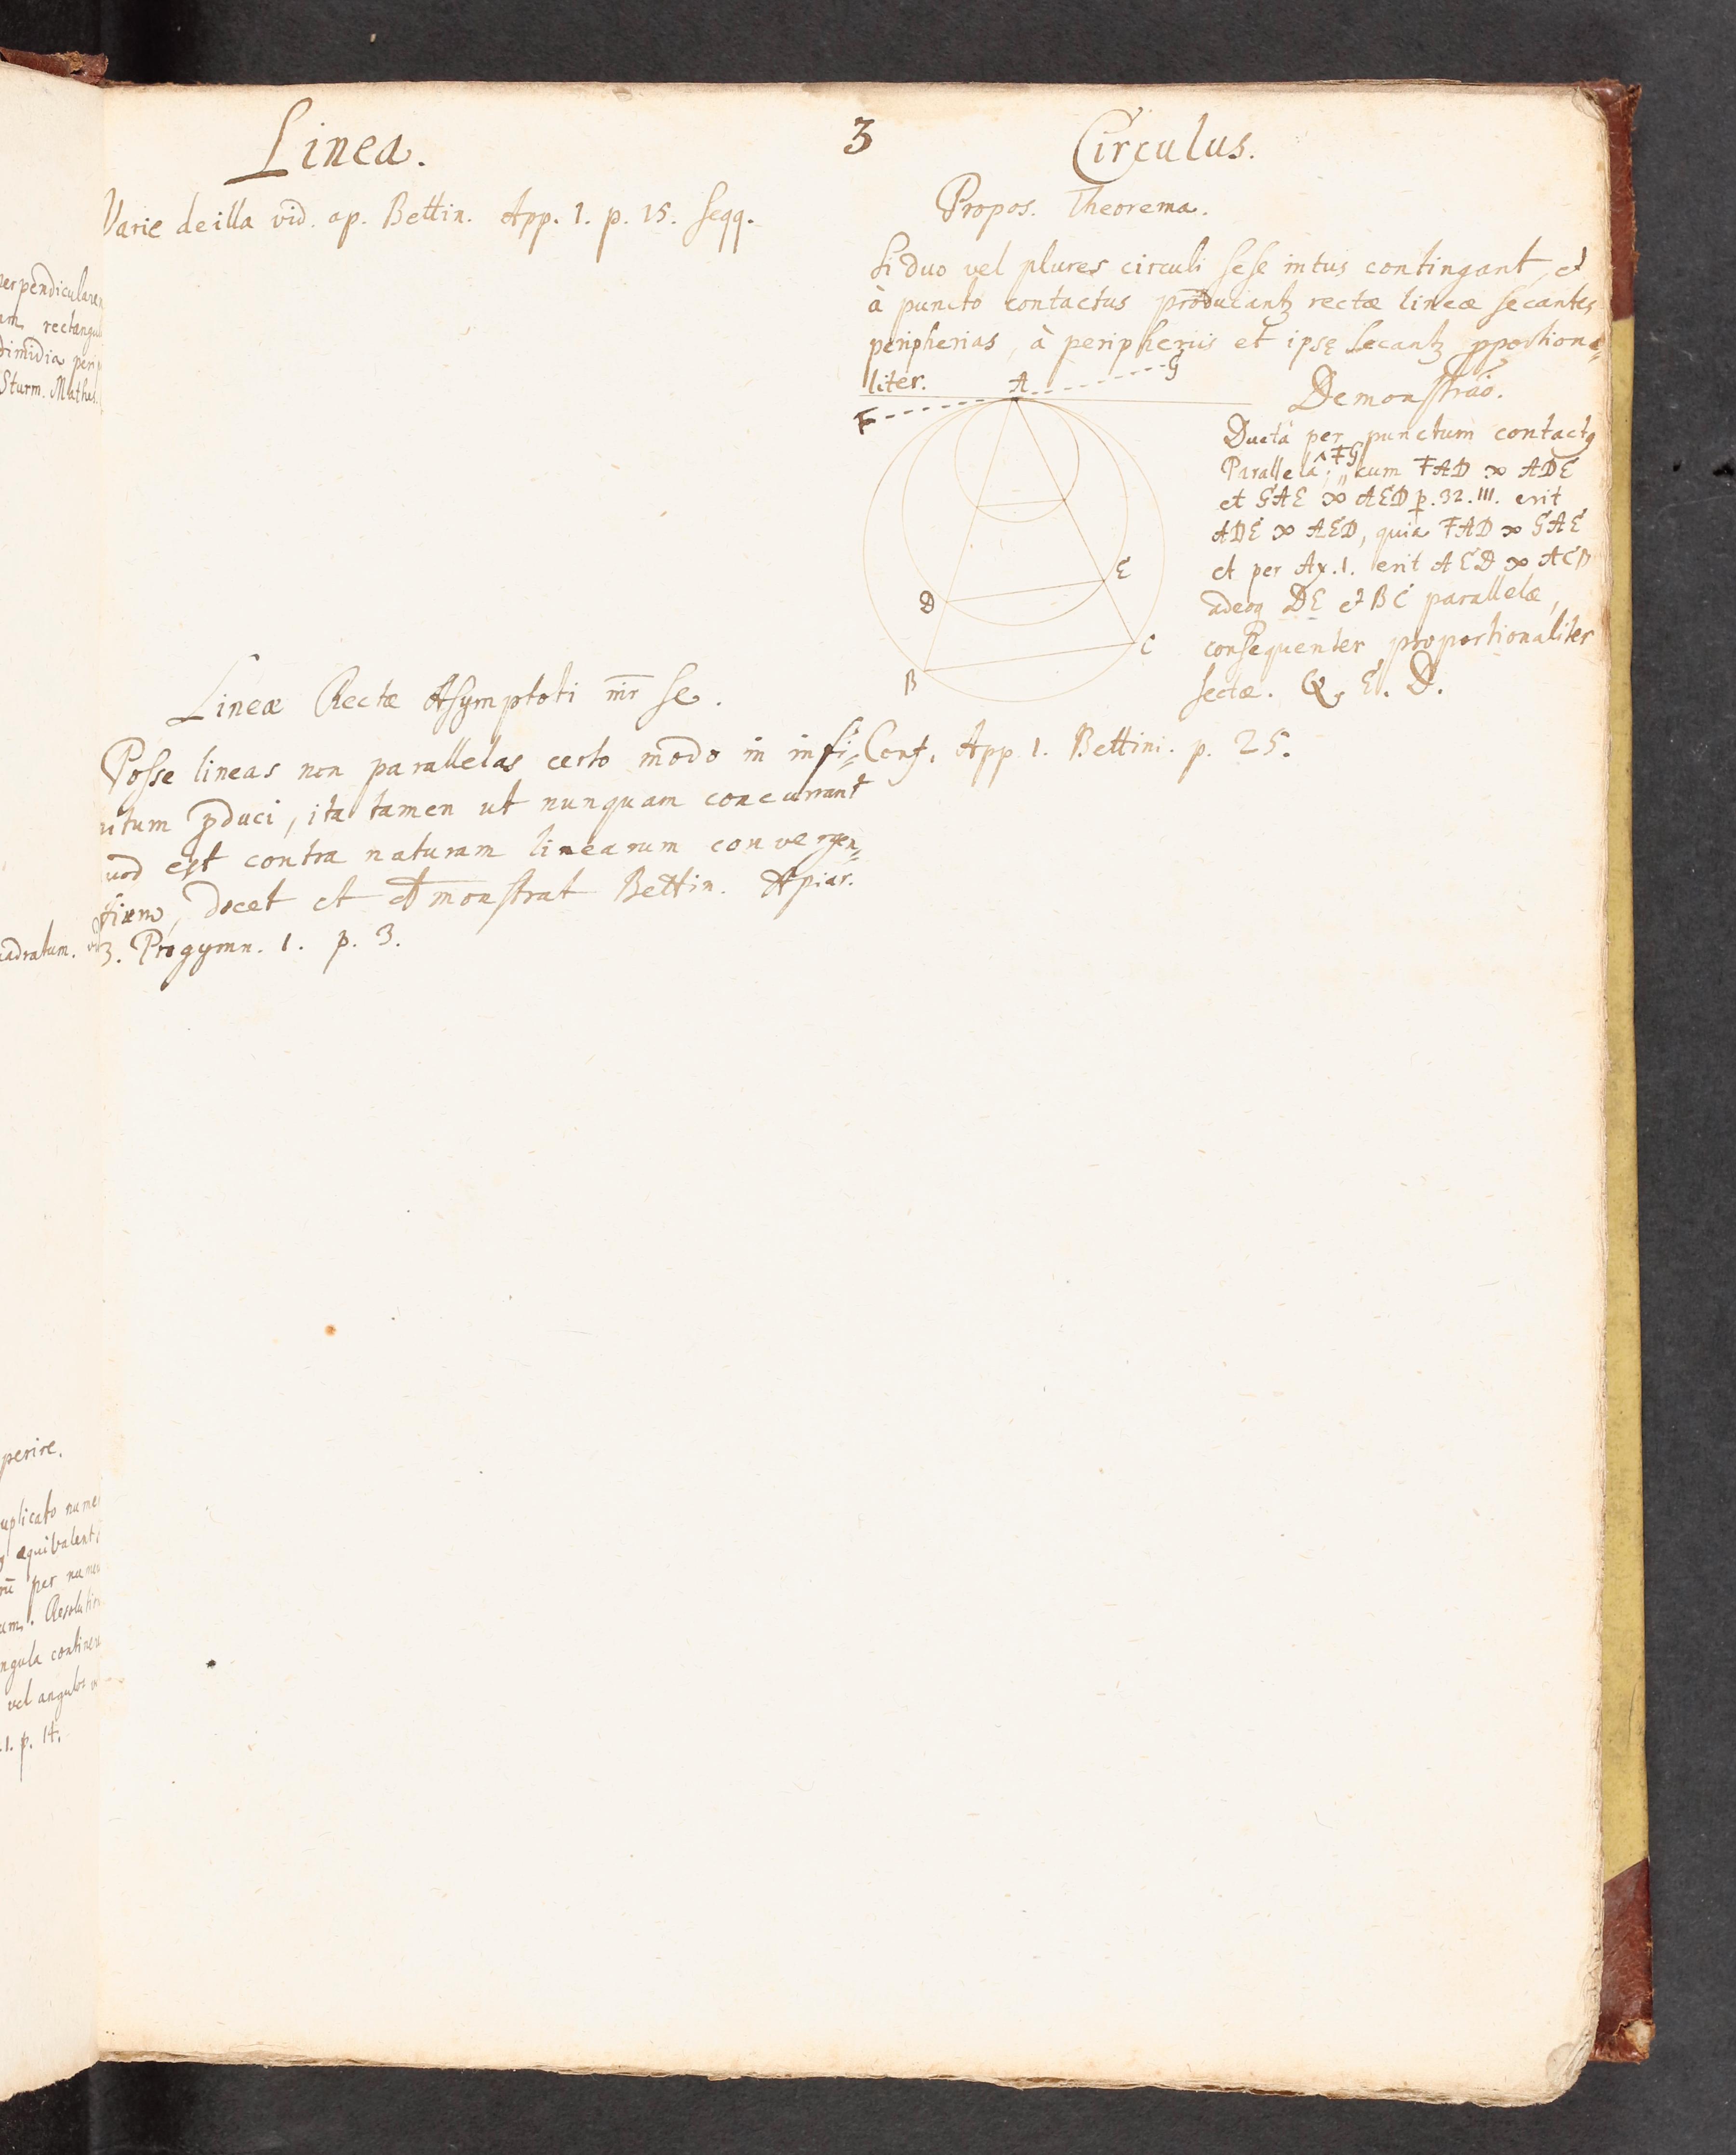 perpendicularem
am, rectangu
dimidia perip
Sturm. Mathes.
adratum.
perire.
uplicato nume
æquivalent
per nume
um. Resolutio
ngula contine
vel angulos
.1. p. 14.
3
Linea.
Varie de illa vid. ap. Bettin. App. 1. p. 15. seqq.
Lineæ Rectæ Asymptoti inr se.
Posse lineas non parallelas certo modo in infi-
nitum pduci, ita tamen ut nunquam concurrant
uod est contra naturam linearum convergen-
tium, docet et demonstrat Bettin. Apiar.
3. Progymn. 1. p. 3.
Circulus.
Propos. Theorema.
Si duo vel plures circuli sese intus contingant, et
à puncto contactus producantꝫ rectæ lineæ secantes
peripherias, à peripheriis et ipsę secantꝫ pportiona-
liter.
A
G
F
D
E
B
C
Demonstrão.
Ductâ per punctum contactꝯ
Parallelâ, FG cum FAD ∞ ADE
et GAE ∞ AED p. 32. III. erit
ADE ∞ AED, quia FAD ∞ GAE
et per Ax. 1. erit AED ∞ ACB
adeoq DE et BC parallelæ,
consequenter proportionaliter
sectæ. Q. E. D.
Conf. App. 1. Bettini. p. 25.